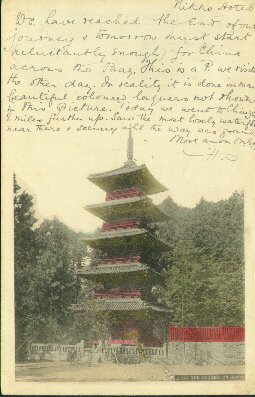 Nikko Hotel
We have reached the end of our
journey & tomorrow must start
(reluctantly enough) for China
across the Bay, This is a P. we visited
the other day. In reality it is done in many
beautiful coloured laquers not shown
in this picture. Today we went to
miles further up. Saw the most lovely waterfall
near there & scenery all the way was
More anon